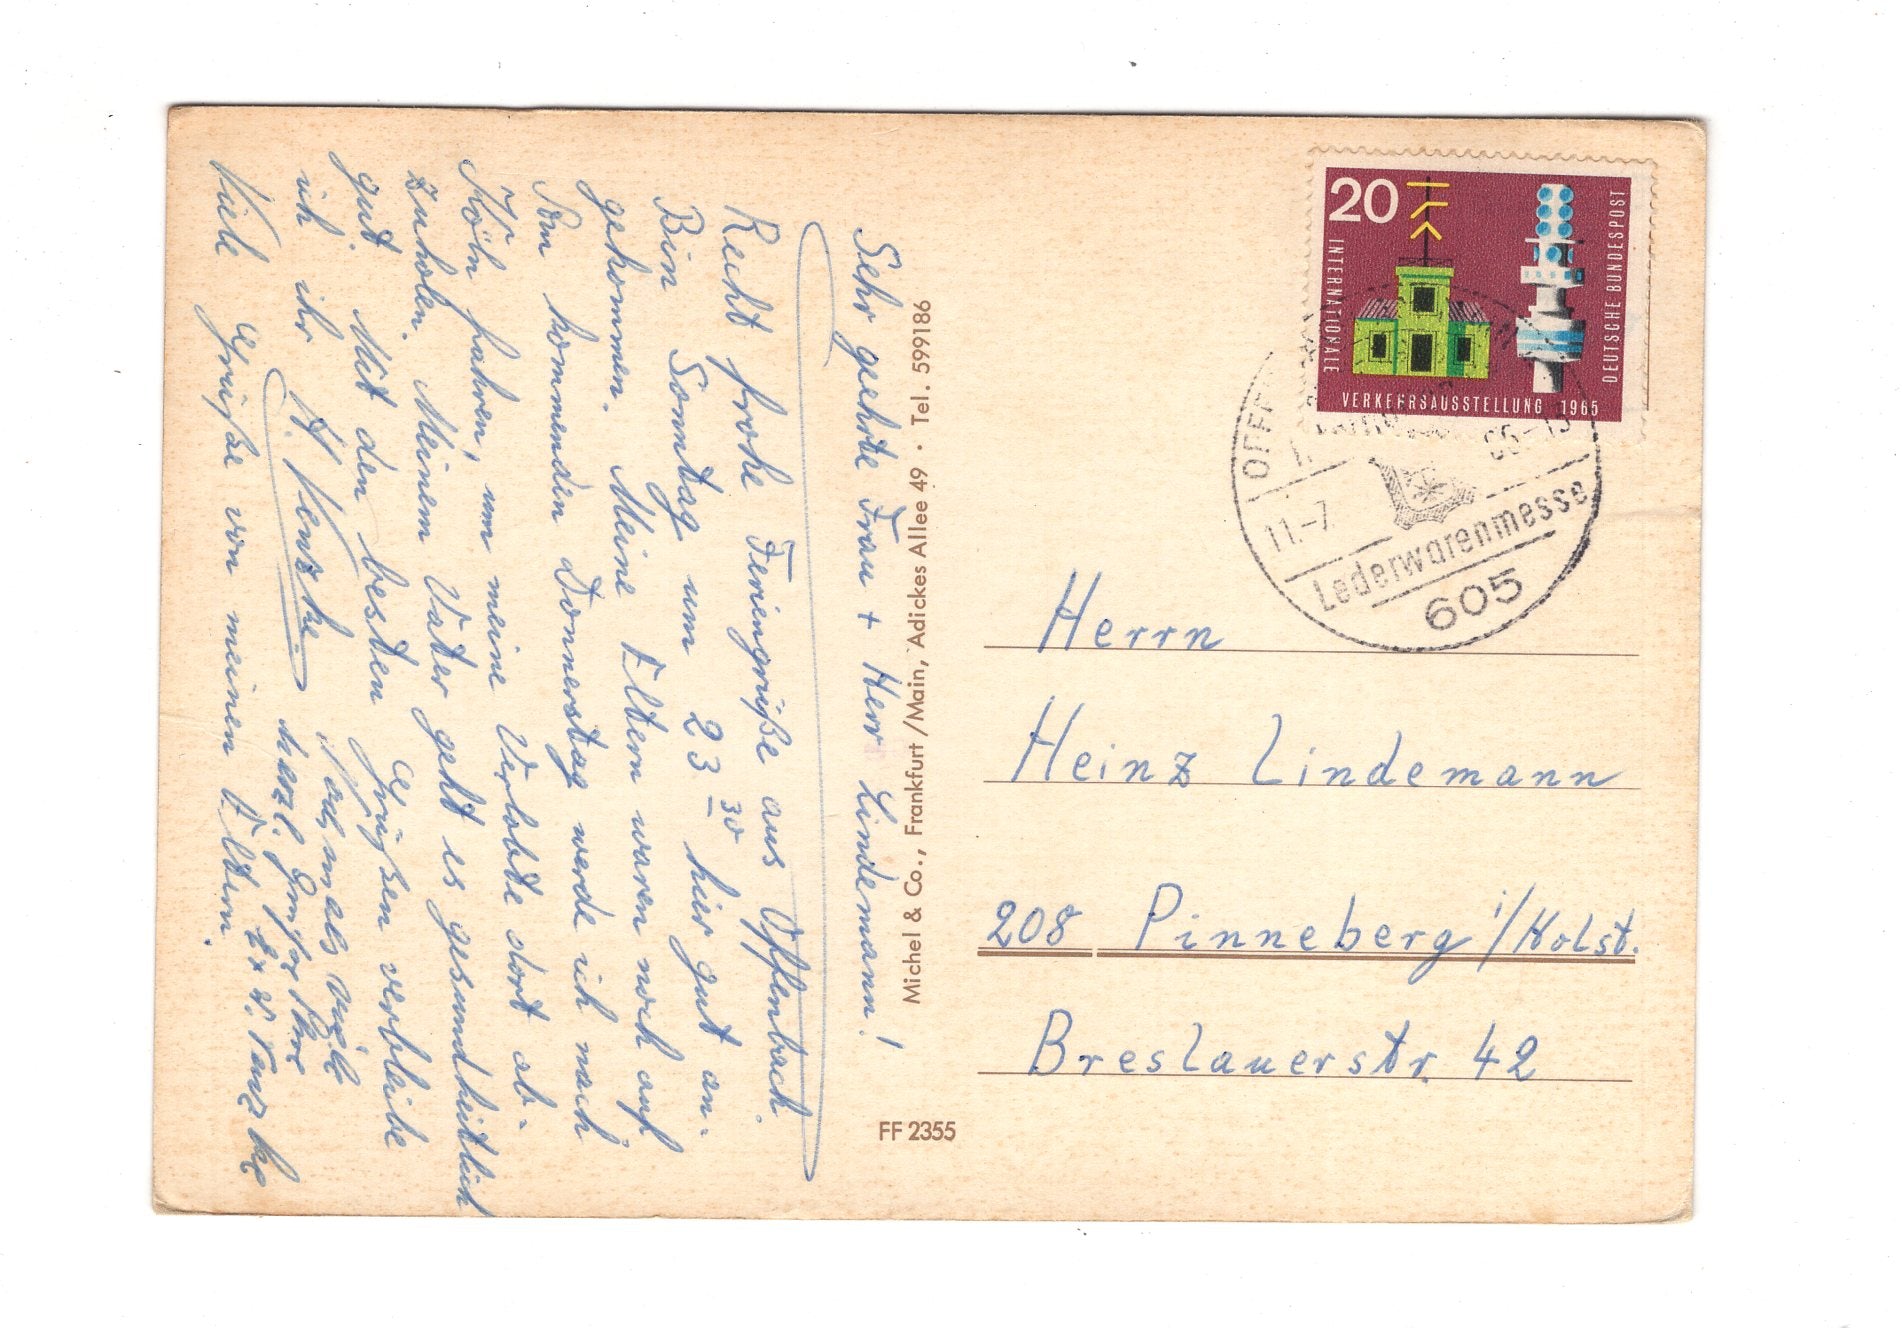 Sehr geehrte Frau + Herr Lindemann!
Recht frohe Feriengrüße aus Offenbach.
Bin Sonntag um 23 30 hier gut an-
gekommen. Meine Eltern waren noch auf.
Am kommenden Donnerstag werde ich nach
Köln fahren, um meine Verlobte dort ab-
zuholen. Meinem Vater geht es gesundheitlich
gut. Mit den besten Grüßen verbleibe
ich ihr
Viele Grüße von meinen Eltern.
Michel & Co., Frankfurt/Main, Adickes Allee 49 · Tel. 599186
FF 2355
20
INTERNATIONALE
VERKEHRSAUSSTELLUNG 1965
DEUTSCHE BUNDESPOST
OFF
11.-7
Lederwarenmesse
605
Herrn
Heinz Lindemann
208 Pinneberg i/Holst.
Breslauerstr. 42